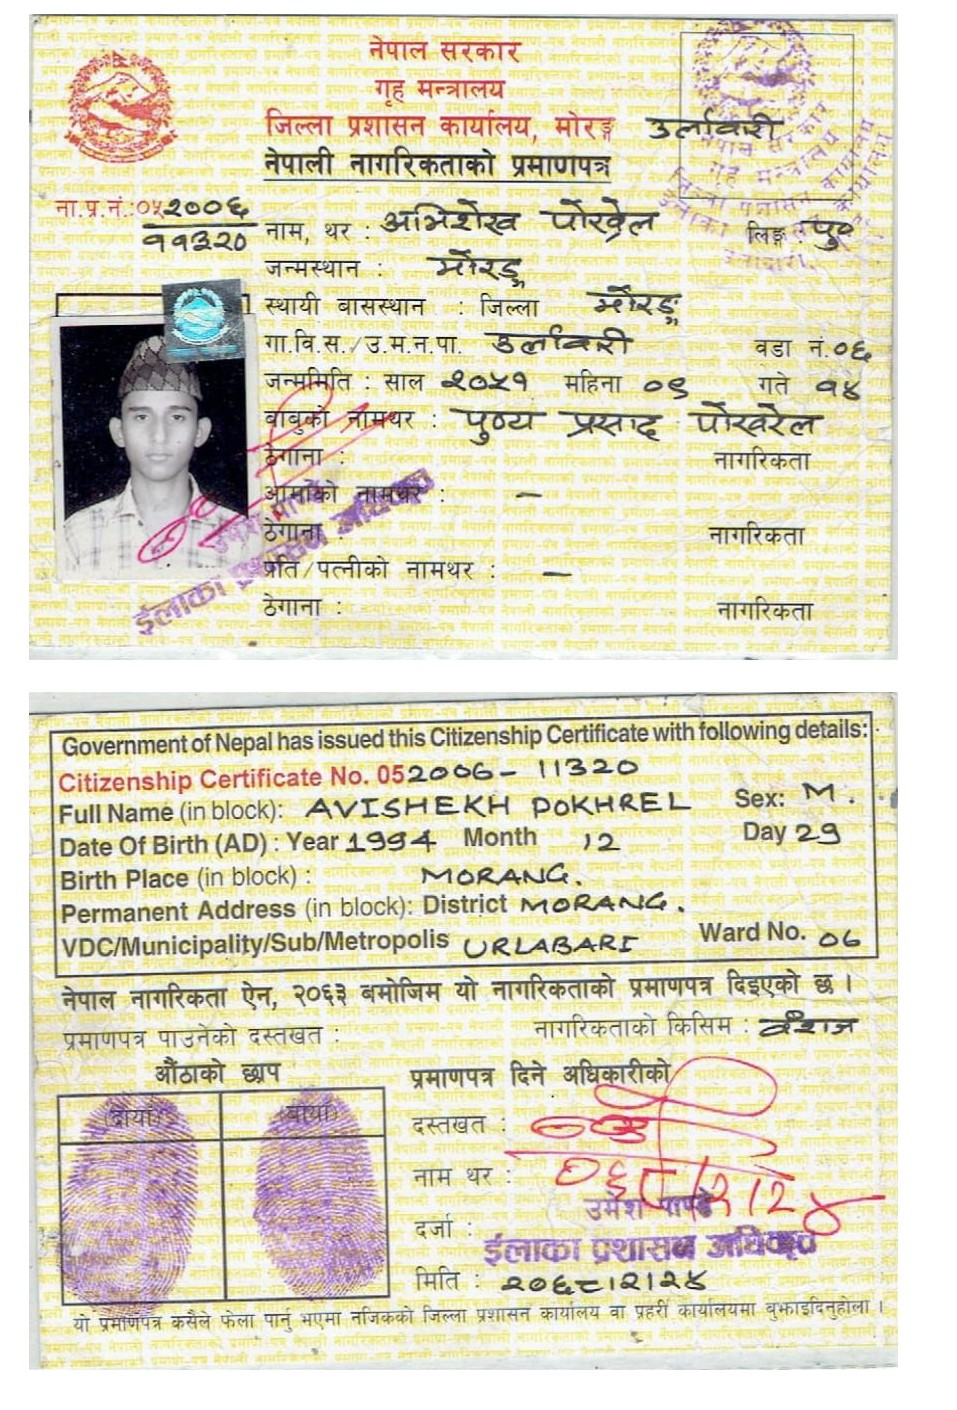 नेपाल सरकार
गृह मन्त्रालय
जिल्ला प्रशासन कार्यालय, मोरङ्ग उर्लावारी
नेपाली नागरिकताको प्रमाणपत्र
ना.प्र.नं.:०५२००६
११३२०
नाम, थर : अभिशेख पोखरेल लिङ्ग : पुरुष
जन्मस्थान : मोरङ्ग
स्थायी बासस्थान : जिल्ला मोरङ्ग
गा.वि.स./उ.म.न.पा. उर्लावरी वडा नं.०६
जन्ममिति : साल २०५१ महिना ०९ गते १४
बाबुको नामथर : पुण्य प्रसाद पोखरेल
ठेगाना : नागरिकता
आमाको नामथर : –
ठेगाना : नागरिकता
प्रति/पत्नीको नामथर : –
ठेगाना : नागरिकता
ईलाका प्रशासन अधिकृत
Government of Nepal has issued this Citizenship Certificate with following details:
Citizenship Certificate No. 052006- 11320
Full Name (in block): AVISHEKH POKHREL Sex: M.
Date Of Birth (AD) : Year 1994 Month 12 Day 29
Birth Place (in block) : MORANG.
Permanent Address (in block): District MORANG.
VDC/Municipality/Sub/Metropolis URLABARI Ward No. 06
नेपाल नागरिकता ऐन, २०६३ बमोजिम यो नागरिकताको प्रमाणपत्र दिइएको छ ।
प्रमाणपत्र पाउनेको दस्तखत : नागरिकताको किसिम : वंशज
औंठाको छाप प्रमाणपत्र दिने अधिकारीको
(दायाँ) (बायाँ)
दस्तखत :
नाम थर :
उमेश पाण्डे
दर्जा : ईलाका प्रशासन अधिकृत
मिति : २०६८।२।२४
यो प्रमाणपत्र कसैले फेला पार्नु भएमा नजिकको जिल्ला प्रशासन कार्यालय वा प्रहरी कार्यालयमा बुझाइदिनुहोला ।